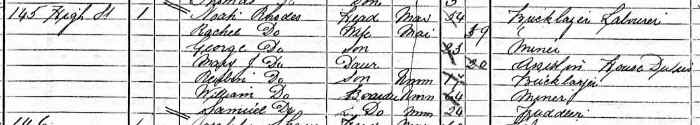 Son 3
145 High St 1 Noah Rhodes Head Mar 54 Bricklayer Labourer
Rachel Do Wife Mar 59
George Do Son 23 Miner
Mary J Do Daur 20 Assistin House Duties
Reubin Do Son Unm 17 Bricklayer
William Do Boarder Unm 64 Miner
Samuel Do Do Unm 24
146 1